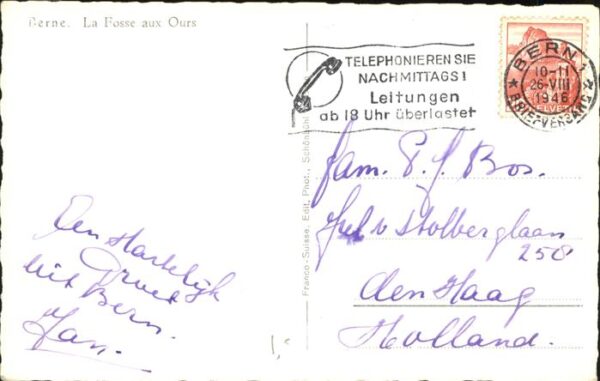 Berne. La Fosse aux Ours
TELEPHONIEREN SIE
NACHMITTAGS!
Leitungen
ab 18 Uhr überlastet
BERN 1
10-11
26-VIII
1946
BRIEFVERSAND
HELVETIA
Fam. P. J. Bos.
Jul. v Stolberglaan
258
den Haag
Holland.
Een Hartelijk
Groet
uit Bern.
Jan.
Franco-Suisse, Edit. Phot., Schönbühl
1,-